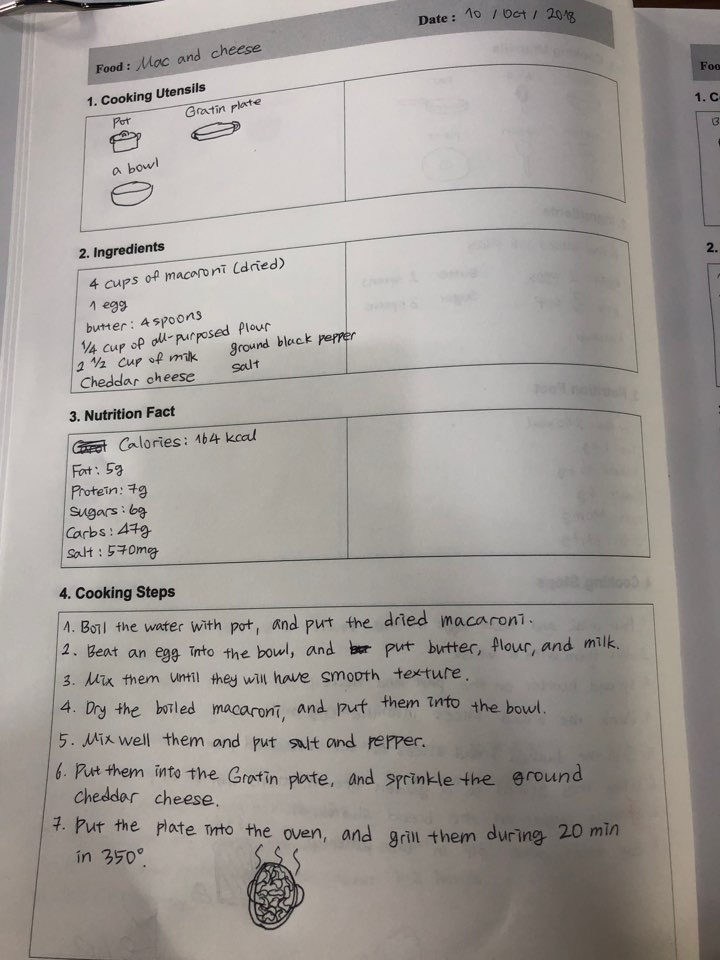 Food : Mac and cheese
Date : 10 / Oct / 2018
1. Cooking Utensils
Pot
Gratin plate
a bowl
2. Ingredients
4 cups of macaroni (dried)
1 egg
butter: 4 spoons
1/4 cup of all-purposed flour
2 1/2 cup of milk
ground black pepper
Cheddar cheese
salt
3. Nutrition Fact
Calories: 164 kcal
Fat: 5g
Protein: 7g
Sugars: 6g
Carbs: 47g
Salt: 570mg
4. Cooking Steps
1. Boil the water with pot, and put the dried macaroni.
2. Beat an egg into the bowl, and put butter, flour, and milk.
3. Mix them until they will have smooth texture.
4. Dry the boiled macaroni, and put them into the bowl.
5. Mix well them and put salt and pepper.
6. Put them into the Gratin plate, and sprinkle the ground
cheddar cheese.
7. Put the plate into the oven, and grill them during 20 min
in 350°.
Foo
1. C
2.